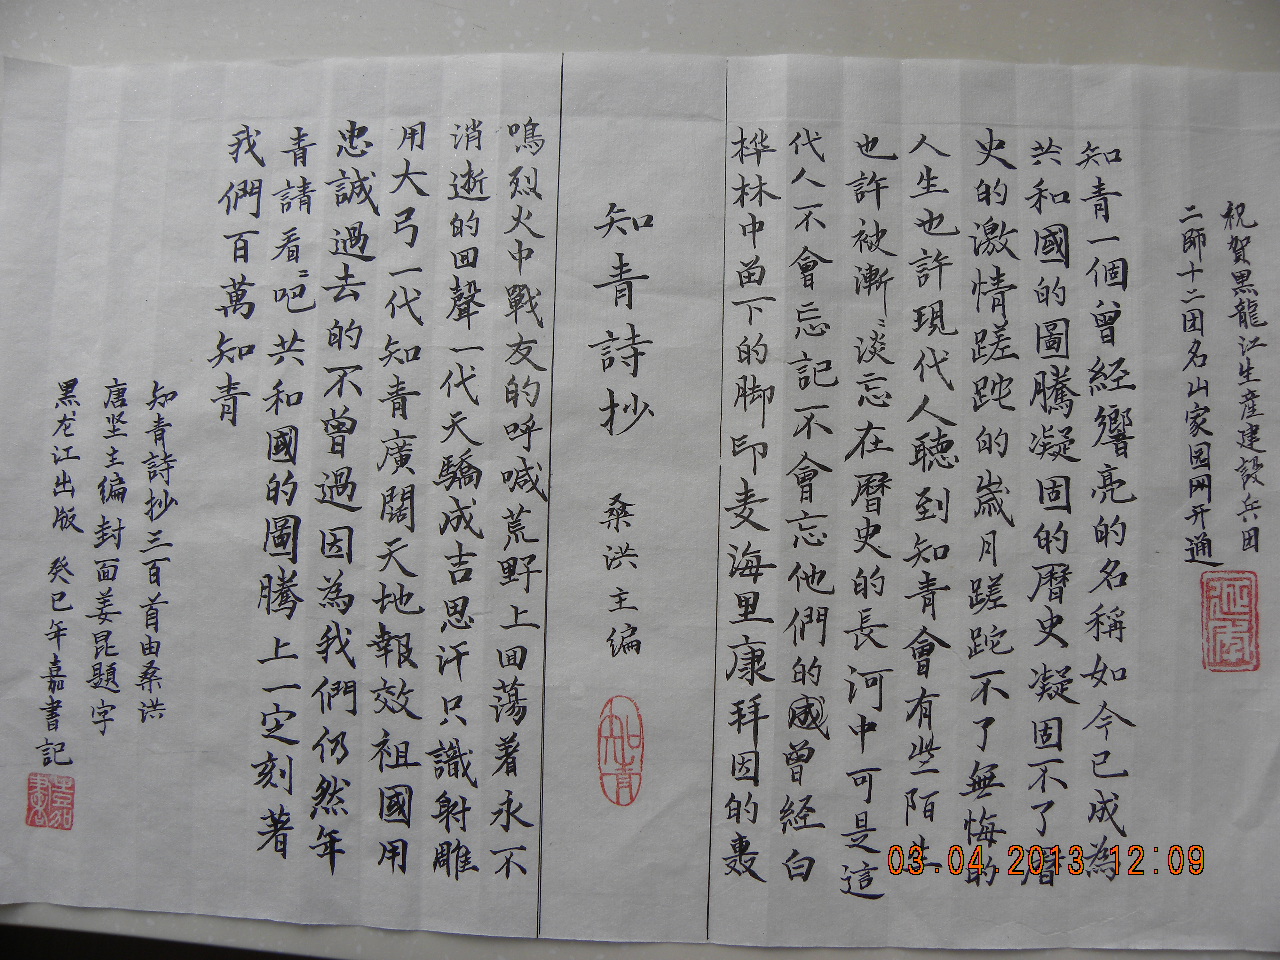 祝賀黑龍江生産建設兵团
二師十二团名山家园网开通
知青一個曾經響亮的名稱如今已成為
共和國的圖騰凝固的曆史凝固不了曆
史的激情蹉跎的歲月蹉跎不了無悔的
人生也許現代人聽到知青會有些陌生
也許被漸〻淡忘在曆史的長河中可是這
代人不會忘記不會忘他們的曾經白
桦林中留下的脚印麦海里康拜因的轰
知青詩抄
桑洪主编
知青
鳴烈火中戰友的呼喊荒野上回蕩著永不
消逝的回聲一代天驕成吉思汗只識射雕
用大弓一代知青廣闊天地報效祖國用
忠誠過去的不曾過因為我們仍然年
青請看〻吧共和國的圖騰上一定刻著
我們百萬知青
知青詩抄三百首由桑洪
唐坚主编封面姜昆題字
黑龙江出版 癸巳年嘉書記
03.04.2013 12:09